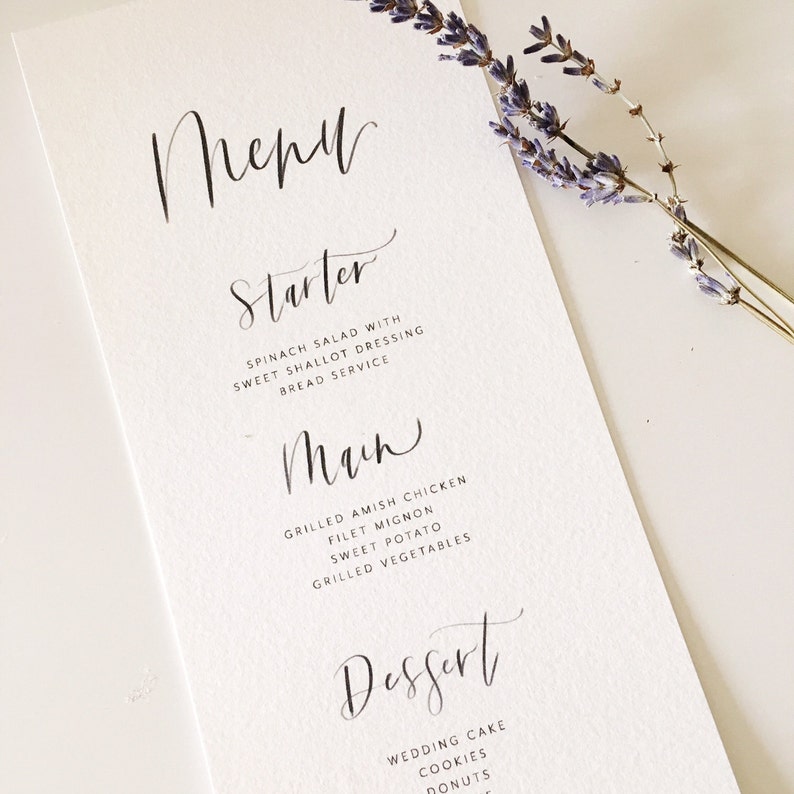 Menu
Starter
SPINACH SALAD WITH
SWEET SHALLOT DRESSING
BREAD SERVICE
Main
GRILLED AMISH CHICKEN
FILET MIGNON
SWEET POTATO
GRILLED VEGETABLES
Dessert
WEDDING CAKE
COOKIES
DONUTS